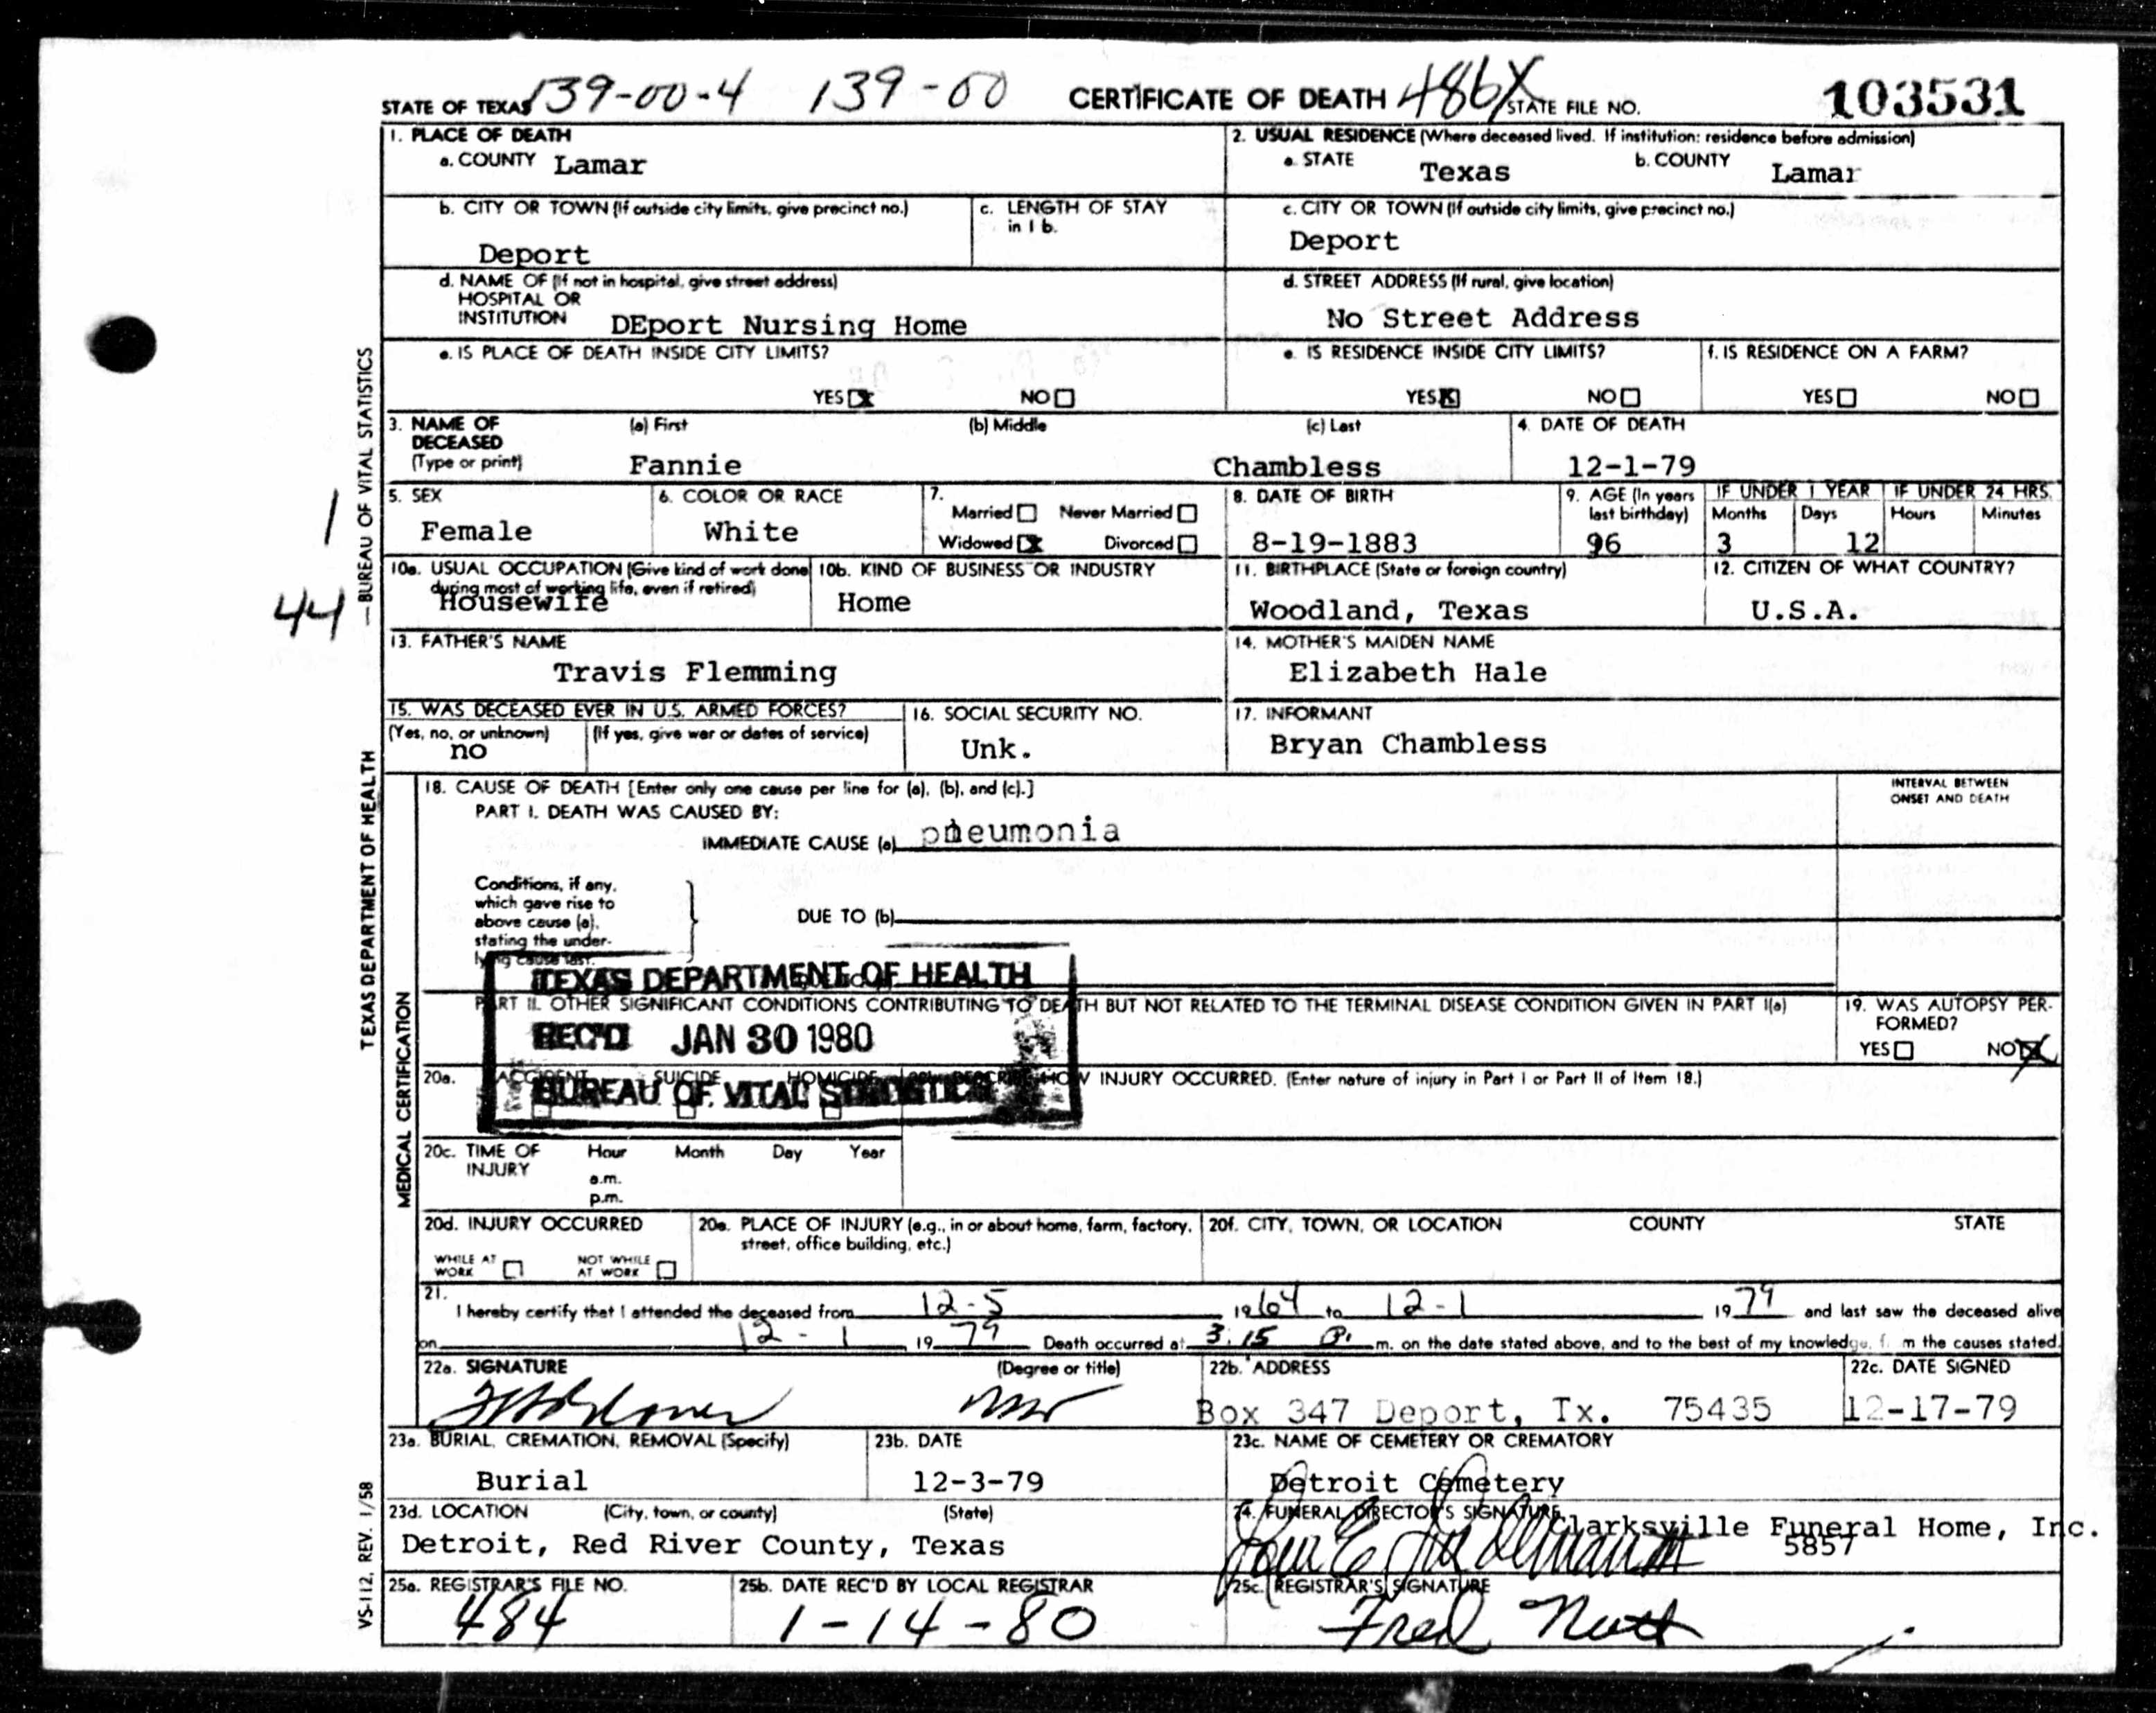 STATE OF TEXAS 139-00-4 139-00 CERTIFICATE OF DEATH 486X STATE FILE NO. 103531
1. PLACE OF DEATH
a. COUNTY Lamar
2. USUAL RESIDENCE (Where deceased lived. If institution: residence before admission)
a. STATE Texas b. COUNTY Lamar
b. CITY OR TOWN (If outside city limits, give precinct no.)
Deport
c. LENGTH OF STAY
in 1 b.
c. CITY OR TOWN (If outside city limits, give precinct no.)
Deport
d. NAME OF (If not in hospital, give street address)
HOSPITAL OR
INSTITUTION DEport Nursing Home
d. STREET ADDRESS (If rural, give location)
No Street Address
e. IS PLACE OF DEATH INSIDE CITY LIMITS?
YES x NO
e. IS RESIDENCE INSIDE CITY LIMITS?
YES X NO
f. IS RESIDENCE ON A FARM?
YES NO
3. NAME OF
DECEASED
(Type or print)
(a) First (b) Middle (c) Last
Fannie Chambless
4. DATE OF DEATH
12-1-79
5. SEX
Female
6. COLOR OR RACE
White
7.
Married Never Married
Widowed x Divorced
8. DATE OF BIRTH
8-19-1883
9. AGE (In years
last birthday)
96
IF UNDER 1 YEAR IF UNDER 24 HRS.
Months Days Hours Minutes
3 12
10a. USUAL OCCUPATION (Give kind of work done
during most of working life, even if retired)
Housewife
10b. KIND OF BUSINESS OR INDUSTRY
Home
11. BIRTHPLACE (State or foreign country)
Woodland, Texas
12. CITIZEN OF WHAT COUNTRY?
U.S.A.
13. FATHER'S NAME
Travis Flemming
14. MOTHER'S MAIDEN NAME
Elizabeth Hale
15. WAS DECEASED EVER IN U.S. ARMED FORCES?
(Yes, no, or unknown) (If yes, give war or dates of service)
no
16. SOCIAL SECURITY NO.
Unk.
17. INFORMANT
Bryan Chambless
18. CAUSE OF DEATH [Enter only one cause per line for (a), (b), and (c).]
INTERVAL BETWEEN
ONSET AND DEATH
PART I. DEATH WAS CAUSED BY:
IMMEDIATE CAUSE (a) pneumonia
Conditions, if any,
which gave rise to
above cause (a),
stating the under-
lying cause last.
DUE TO (b)
TEXAS DEPARTMENT OF HEALTH
REC'D JAN 30 1980
BUREAU OF VITAL STATISTICS
PART II. OTHER SIGNIFICANT CONDITIONS CONTRIBUTING TO DEATH BUT NOT RELATED TO THE TERMINAL DISEASE CONDITION GIVEN IN PART I(a)
19. WAS AUTOPSY PER-
FORMED?
YES NO X
20a. ACCIDENT SUICIDE HOMICIDE
20b. DESCRIBE HOW INJURY OCCURRED. (Enter nature of injury in Part I or Part II of Item 18.)
20c. TIME OF
INJURY
Hour Month Day Year
a.m.
p.m.
20d. INJURY OCCURRED
WHILE AT
WORK
NOT WHILE
AT WORK
20e. PLACE OF INJURY (e.g., in or about home, farm, factory,
street, office building, etc.)
20f. CITY, TOWN, OR LOCATION COUNTY STATE
21.
I hereby certify that I attended the deceased from 12-5 1964 to 12-1 1979 and last saw the deceased alive
on 12-1 1979 Death occurred at 3:15 P. m. on the date stated above, and to the best of my knowledge, f m the causes stated.
22a. SIGNATURE (Degree or title)
22b. ADDRESS
Box 347 Deport, Tx. 75435
22c. DATE SIGNED
12-17-79
23a. BURIAL, CREMATION, REMOVAL (Specify)
Burial
23b. DATE
12-3-79
23c. NAME OF CEMETERY OR CREMATORY
Detroit Cemetery
23d. LOCATION (City, town, or county) (State)
Detroit, Red River County, Texas
24. FUNERAL DIRECTOR'S SIGNATURE
Clarksville Funeral Home, Inc.
5857
25a. REGISTRAR'S FILE NO.
484
25b. DATE REC'D BY LOCAL REGISTRAR
1-14-80
25c. REGISTRAR'S SIGNATURE
Fred Nutt
1
44
TEXAS DEPARTMENT OF HEALTH — BUREAU OF VITAL STATISTICS
MEDICAL CERTIFICATION
VS-112, REV. 1/58